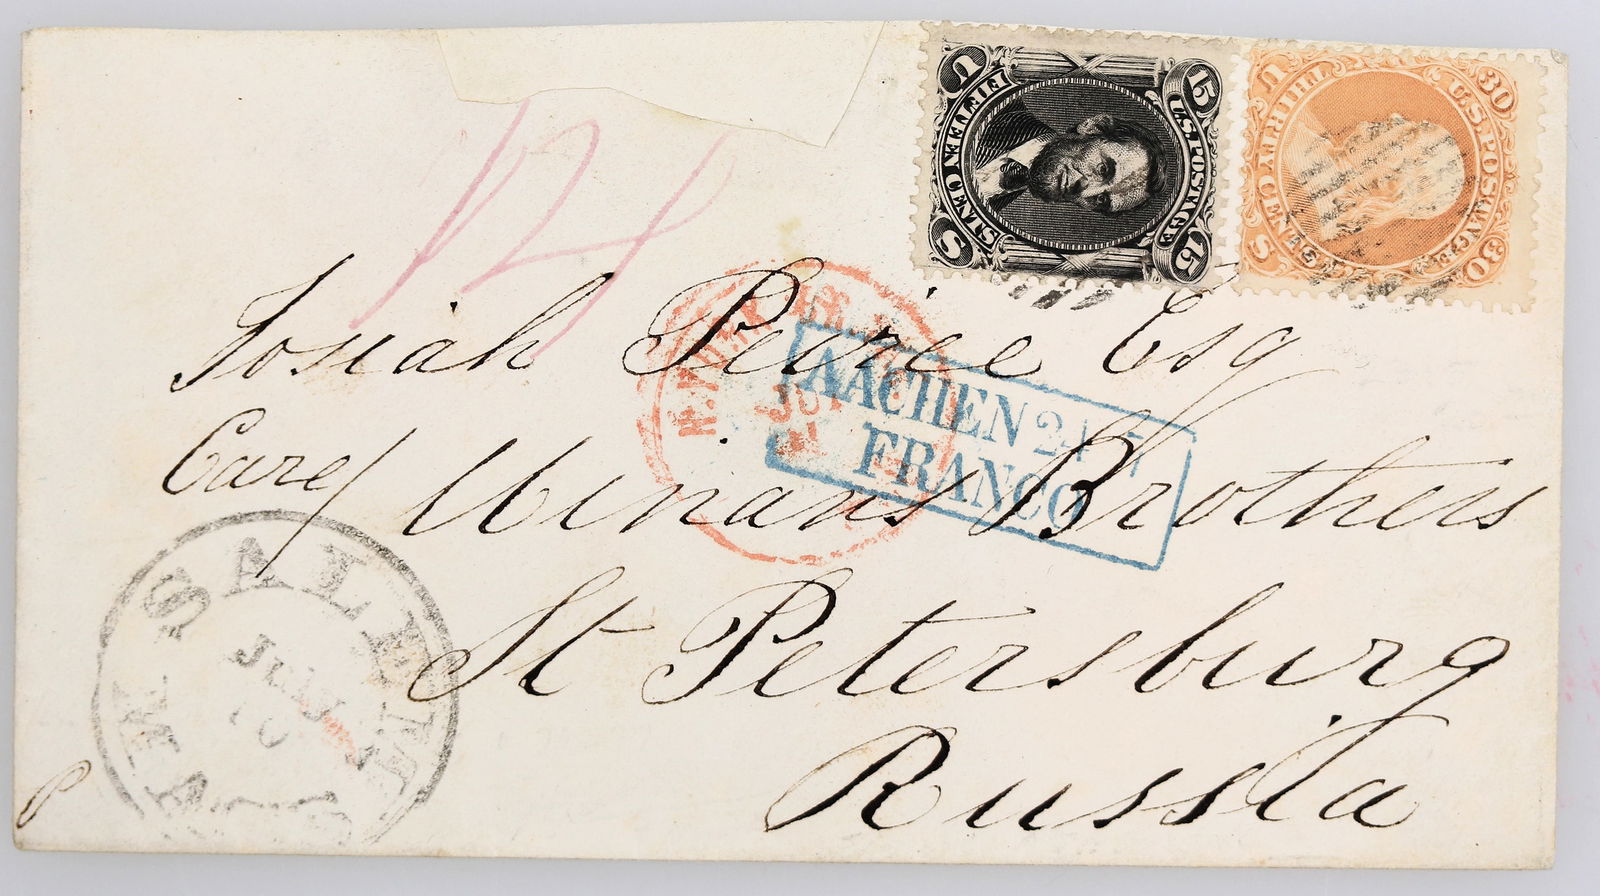 U 15
U.S. POSTAGE
FIFTEEN CENTS
S 15
U 30
U.S. POSTAGE
THIRTY CENTS
S 30
14
Josiah Peirce Esq
Care/ Winans Brothers
St Petersburg
Russia
N. YORK
JUL
AACHEN 24 7
FRANCO
SALEM
JUL
10
MASS
P